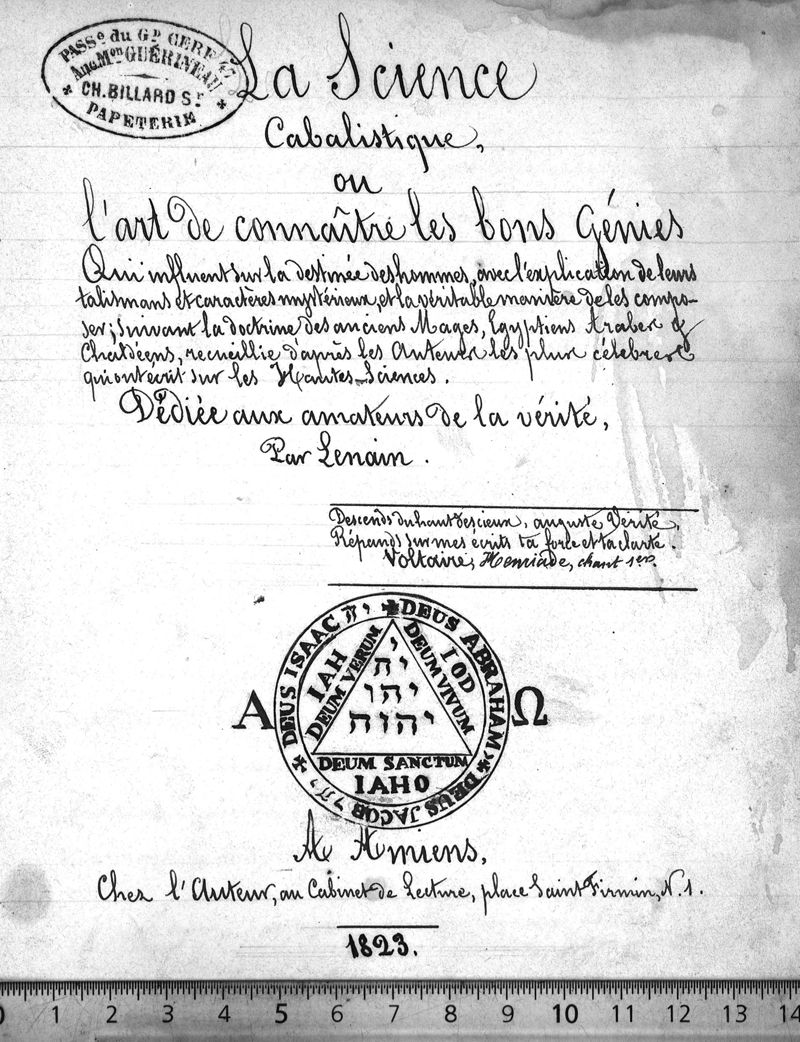 PASSe du Gd CERF 47
Anc. Mon GUÉRINEAU
CH. BILLARD Sr
PAPETERIE
La Science
Cabalistique,
ou
l'art de connaître les bons Génies
Qui influent sur la destinée des hommes, avec l'explication de leurs
talismans et caractères mystérieux, et la véritable manière de les compo-
ser; suivant la doctrine des anciens Mages, Egyptiens Arabes &
Chaldéens, recueillie d'après les Auteurs les plus célèbres
qui ont écrit sur les Hautes-Sciences.
Dédiée aux amateurs de la vérité,
Par Lenain.
Descends du haut des cieux, auguste Vérité,
Répands sur mes écrits ta force et ta clarté.
Voltaire, Henriade, chant 1er.
DEUS ABRAHAM
DEUS ISAAC
DEUS JACOB
IAH
DEUM VERUM
IOD
DEUM VIVUM
י
יה
יהו
יהוה
Α
Ω
DEUM SANCTUM
IAHO
A Amiens,
Chez l'Auteur, au Cabinet de Lecture, place Saint Firmin, N. 1.
1823.
0 1 2 3 4 5 6 7 8 9 10 11 12 13 14